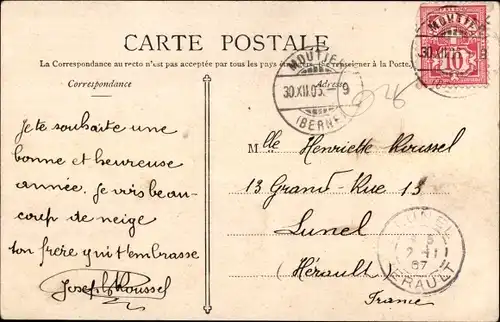 CARTE POSTALE
La Correspondance au recto n'est pas acceptée par tous les pays étrangers. (Se renseigner à la Poste.)
Correspondance
Adresse
MOUTIER
30.XII.06.-9
(BERNE)
MOUTIER
30.XII
9
10
Je te souhaite une
bonne et heureuse
année. Je vois beau-
coup de neige
ton frère qui t'embrasse
Joseph Roussel
Mlle Henriette Roussel
13 Grand-Rue 13
Lunel
(Hérault)
France
LUNEL
07
HERAULT